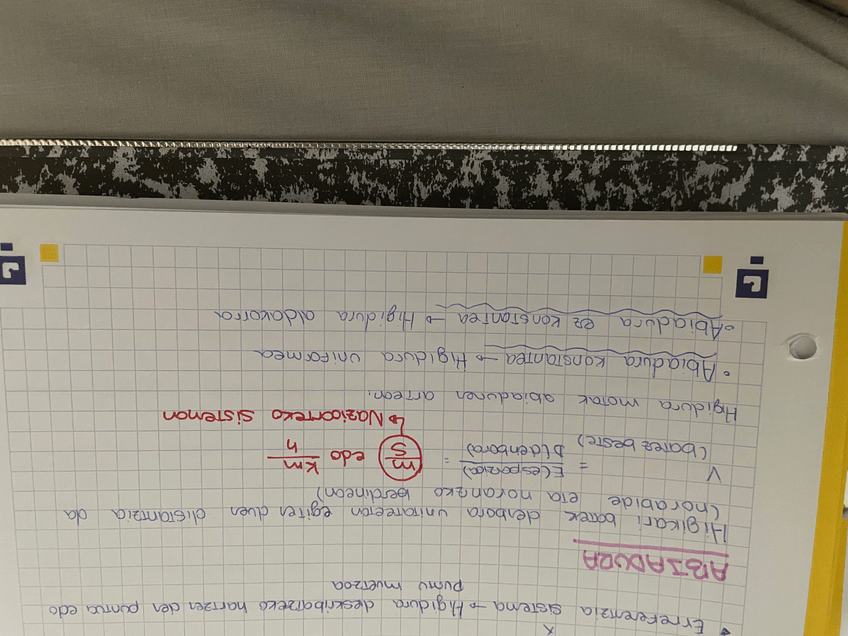 x
• Erreferentzia sistema → Higidura deskribatzeko hartzen den puntua edo
puntu multzoa
ABIADURA
Higikari batek denbora unitatean egiten duen distantzia da
(norabide eta noranzko berdinean)
V = E(espazioa) / D(denbora) = m/s edo km/h
(batez beste)
↳ Nazioarteko sisteman
Higidura motak abiaduren arabera.
• Abiadura konstantea → Higidura uniformea
• Abiadura ez konstantea → Higidura aldakorra